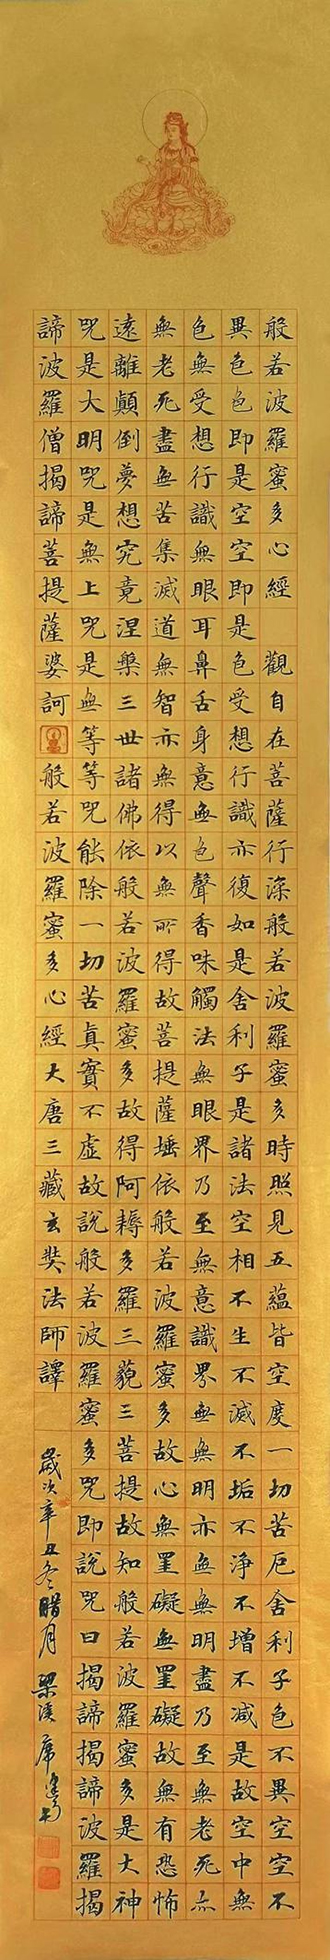 般若波羅蜜多心經 觀自在菩薩行深般若波羅蜜多時照見五蘊皆空度一切苦厄舍利子色不異空空不
異色色即是空空即是色受想行識亦復如是舍利子是諸法空相不生不滅不垢不淨不增不減是故空中無
色無受想行識無眼耳鼻舌身意無色聲香味觸法無眼界乃至無意識界無無明亦無無明盡乃至無老死亦
無老死盡無苦集滅道無智亦無得以無所得故菩提薩埵依般若波羅蜜多故心無罣礙無罣礙故無有恐怖
遠離顛倒夢想究竟涅槃三世諸佛依般若波羅蜜多故得阿耨多羅三藐三菩提故知般若波羅蜜多是大神
呪是大明呪是無上呪是無等等呪能除一切苦真實不虛故說般若波羅蜜多呪即說呪曰揭諦揭諦波羅揭
諦波羅僧揭諦菩提薩婆訶 般若波羅蜜多心經大唐三藏玄奘法師譯 歲次辛丑冬臘月 梁溪 席